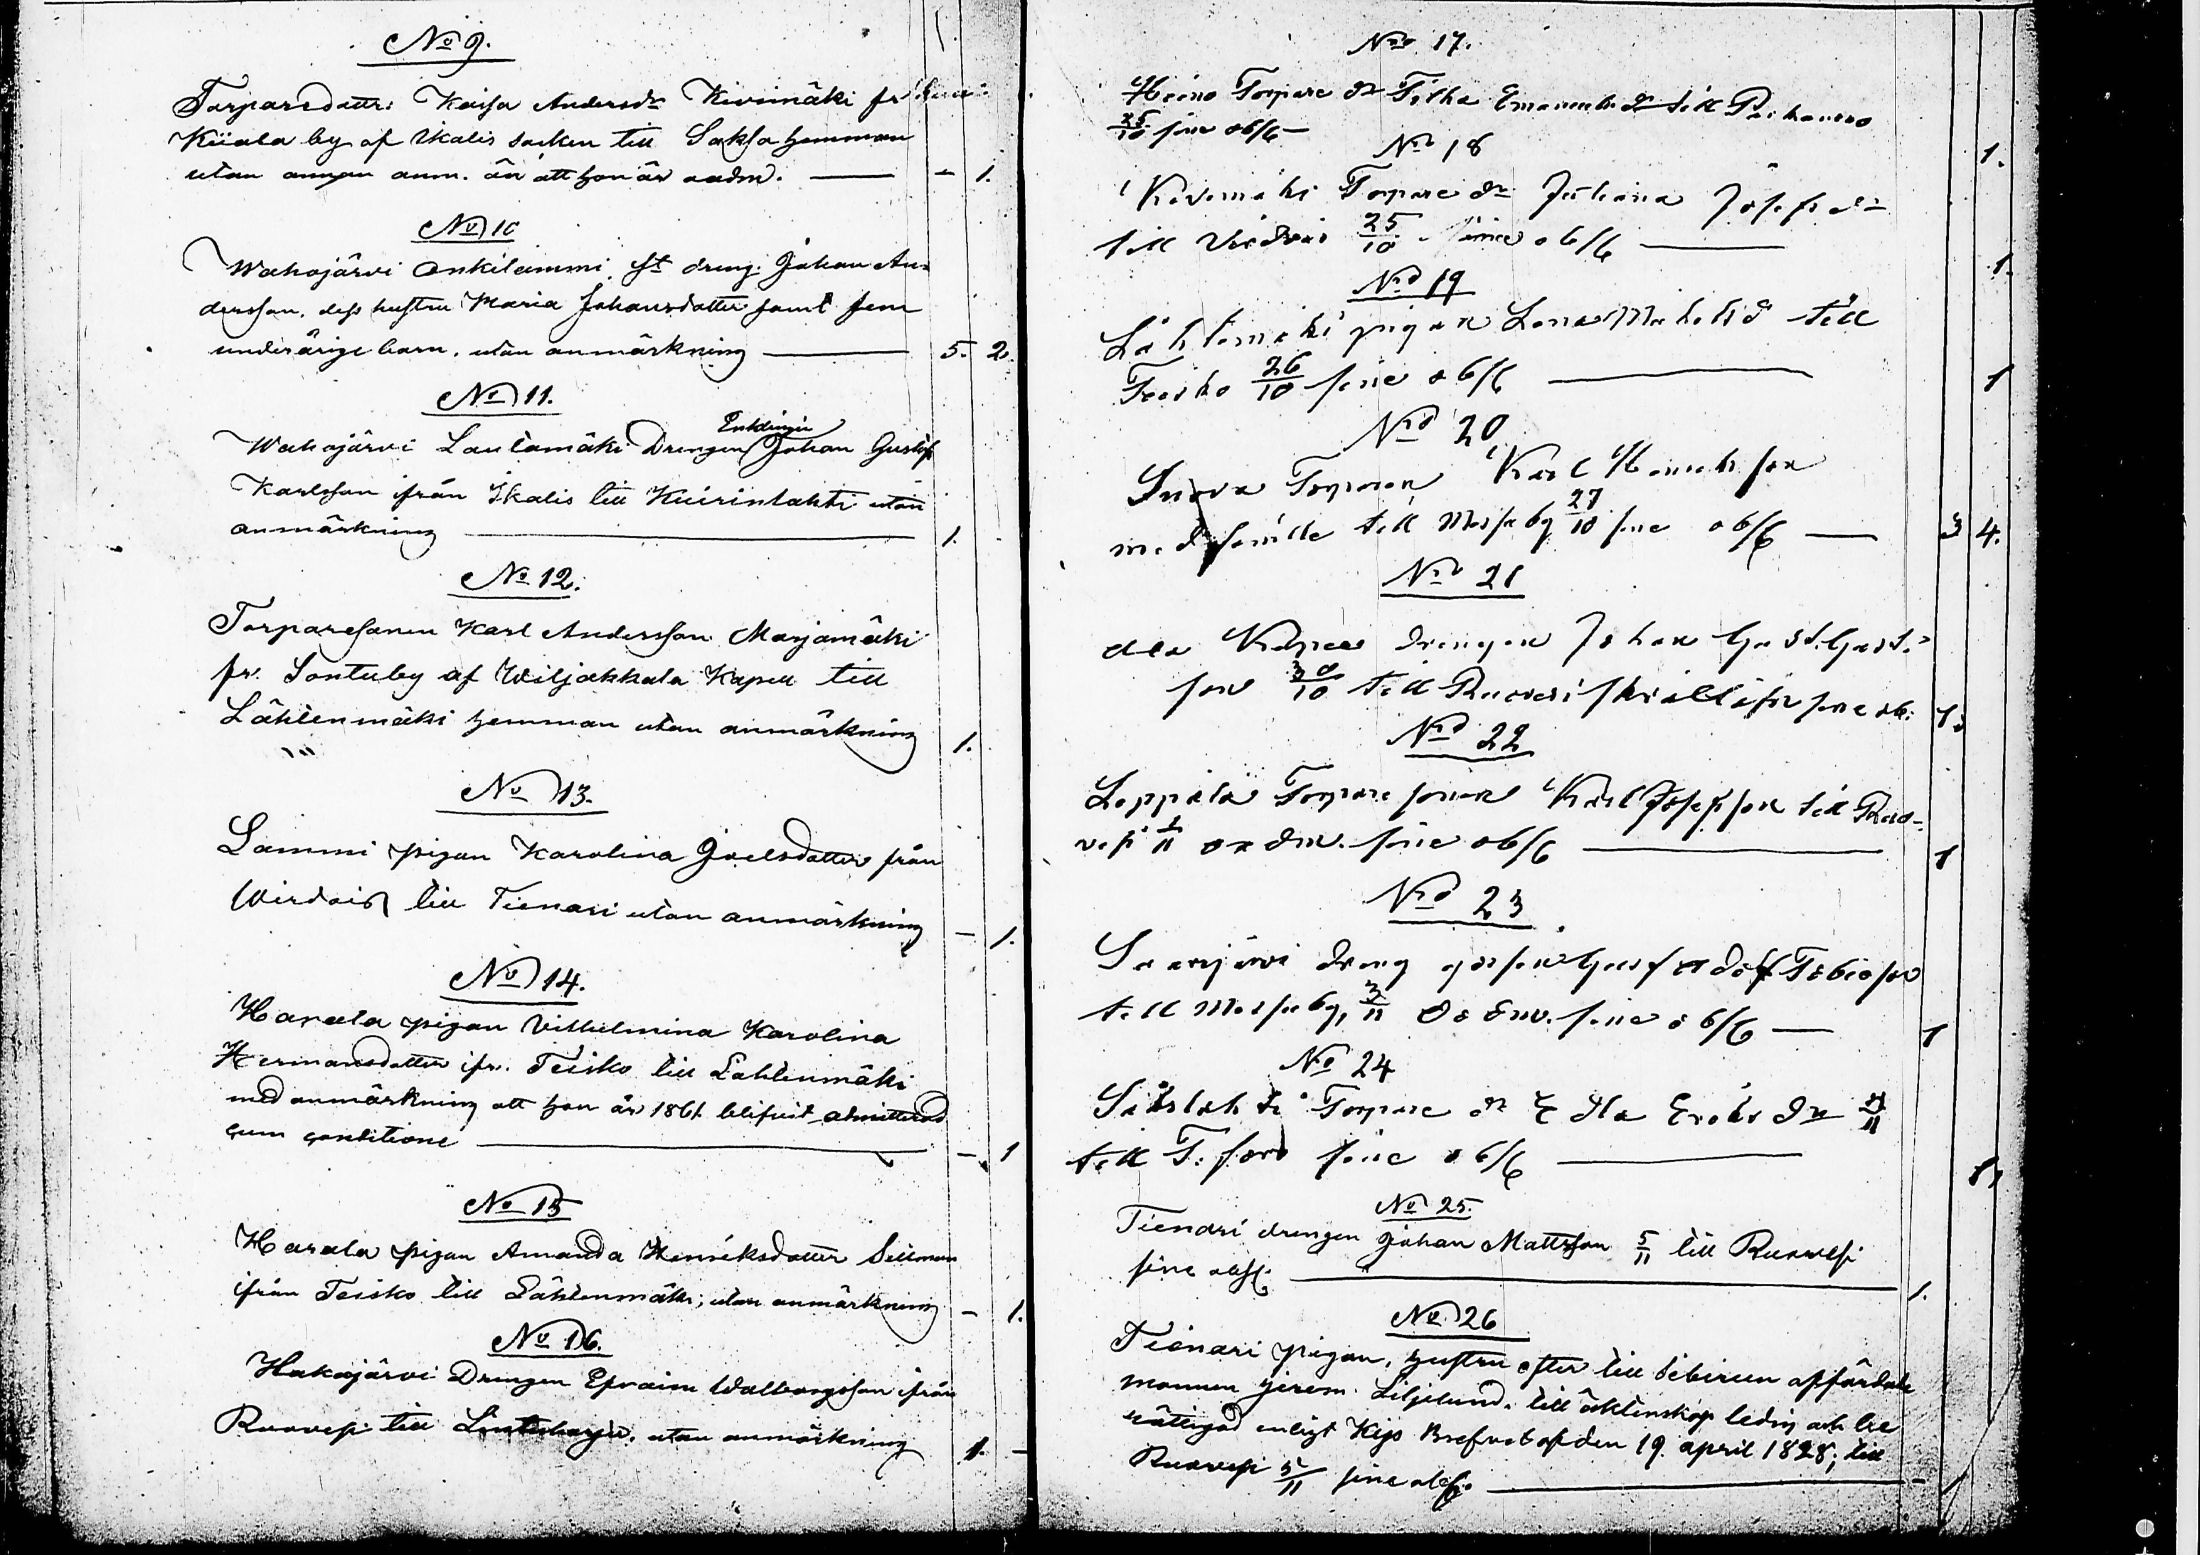 No 9.
Torparedottr: Kaisa Andersdr Kivimäki fr
Kiiala by af Ikalis socken till Saksa hemman
utan annan anm. än att hon är oadm. — - 1.
No 10
Wahojärvi Onkilammi, dreng. Johan An-
dersson, dess hustru Maria Johansdotter samt fem
underårige barn, utan anmärkning — 5. 2.
No 11.
Enkdrengen
Wahojärvi Lautamäki Drengen Johan Gustaf
Karlsson ifrån Ikalis till Kuirinlahti utan
anmärkning — 1.
No 12.
Torparesonen Karl Andersson Marjamäki
fr. Sontuby af Wiljakkala Kapell till
Lähtenmäki hemman utan anmärkning 1.
No 13.
Lammi pigan Karolina Joelsdotter från
Wirdois till Tienari utan anmärkning - 1.
No 14.
Harala pigan Vilhelmina Karolina
Hermansdotter ifr. Teisko till Lähtenmäki
med anmärkning att hon år 1861 blifvit admitterad
cum conditione — - 1
No 15
Harala pigan Amanda Henriksdotter Sellman
ifrån Teisko till Lähtenmäki, utan anmärkning - 1.
No 16.
Hakojärvi Drengen Efraim Walborgsson ifrån
Ruovesi till utan anmärkning 1. -
No 17.
Heino Torpare dr Emanuelsdr till
25/10 sine obs/6 — 1.
No 18
Kivimäki Torpare dr Juliana Josefsdr
till Virdois 25/10 sine obs/6 — 1.
No 19
Lähtemäki pigan Lena till
Teisko 26/10 sine obs/6 — 1
No 20
Torparen Karl Henrikson
med famille till by 27/10 sine obs/6 — 3 4.
No 21
drengen Johan Gust. Gust.
son 30/10 till Ruovesi sine ob: 1.
No 22
Leppälä Torpare sonen Karl Josefsson till Ruo-
vesi 1/11 oadm. sine obs/6 — 1
No 23
Saarijärvi dreng gossen Gust Adolf Tobiason
till by, 3/11 sine obs/6 — 1
No 24
Torpare dr Edla Eriksdr
till sine obs/6 — 1.
No 25.
Tienari drengen Johan Mattsson 5/11 till Ruovesi
sine obs/6. — 1.
No 26
Tienari pigan, hustru efter till Sibirien affärdade
mannen Jerem. Liljelund, till äktenskap ledig och be
rättigad enligt Kejs Brefvet af den 19. april 1828; till
Ruovesi 5/11 sine obs/6. — - 1